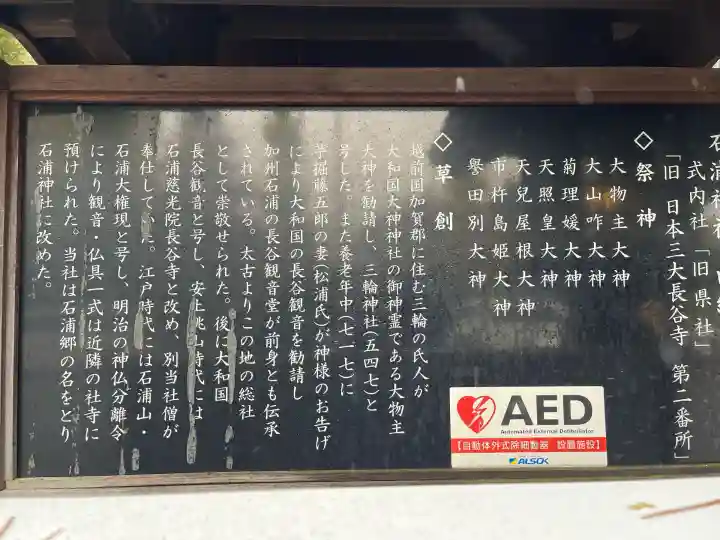 石浦神社
式内社「旧県社」
「旧 日本三大長谷寺 第二番所」
◇祭神
大物主大神
大山咋大神
菊理媛大神
天照皇大神
天兒屋根大神
市杵島姫大神
譽田別大神
◇草創
越前国加賀郡に住む三輪の氏人が
大和国大神神社の御神霊である大物主
大神を勧請し、三輪神社(五四七)と
号した。また養老年中(七一七)に
芋掘藤五郎の妻(松浦氏)が神様のお告げ
により大和国の長谷観音を勧請し
加州石浦の長谷観音堂が前身とも伝承
されている。太古よりこの地の総社
として崇敬せられた。後に大和国
長谷観音と号し、安土桃山時代には
石浦慈光院長谷寺と改め、別当社僧が
奉仕していた。江戸時代には石浦山・
石浦大権現と号し、明治の神仏分離令
により観音・仏具一式は近隣の社寺に
預けられた。当社は石浦郷の名をとり
石浦神社に改めた。
AED
Automated External Defibrillator
【自動体外式除細動器 設置施設】
ALSOK